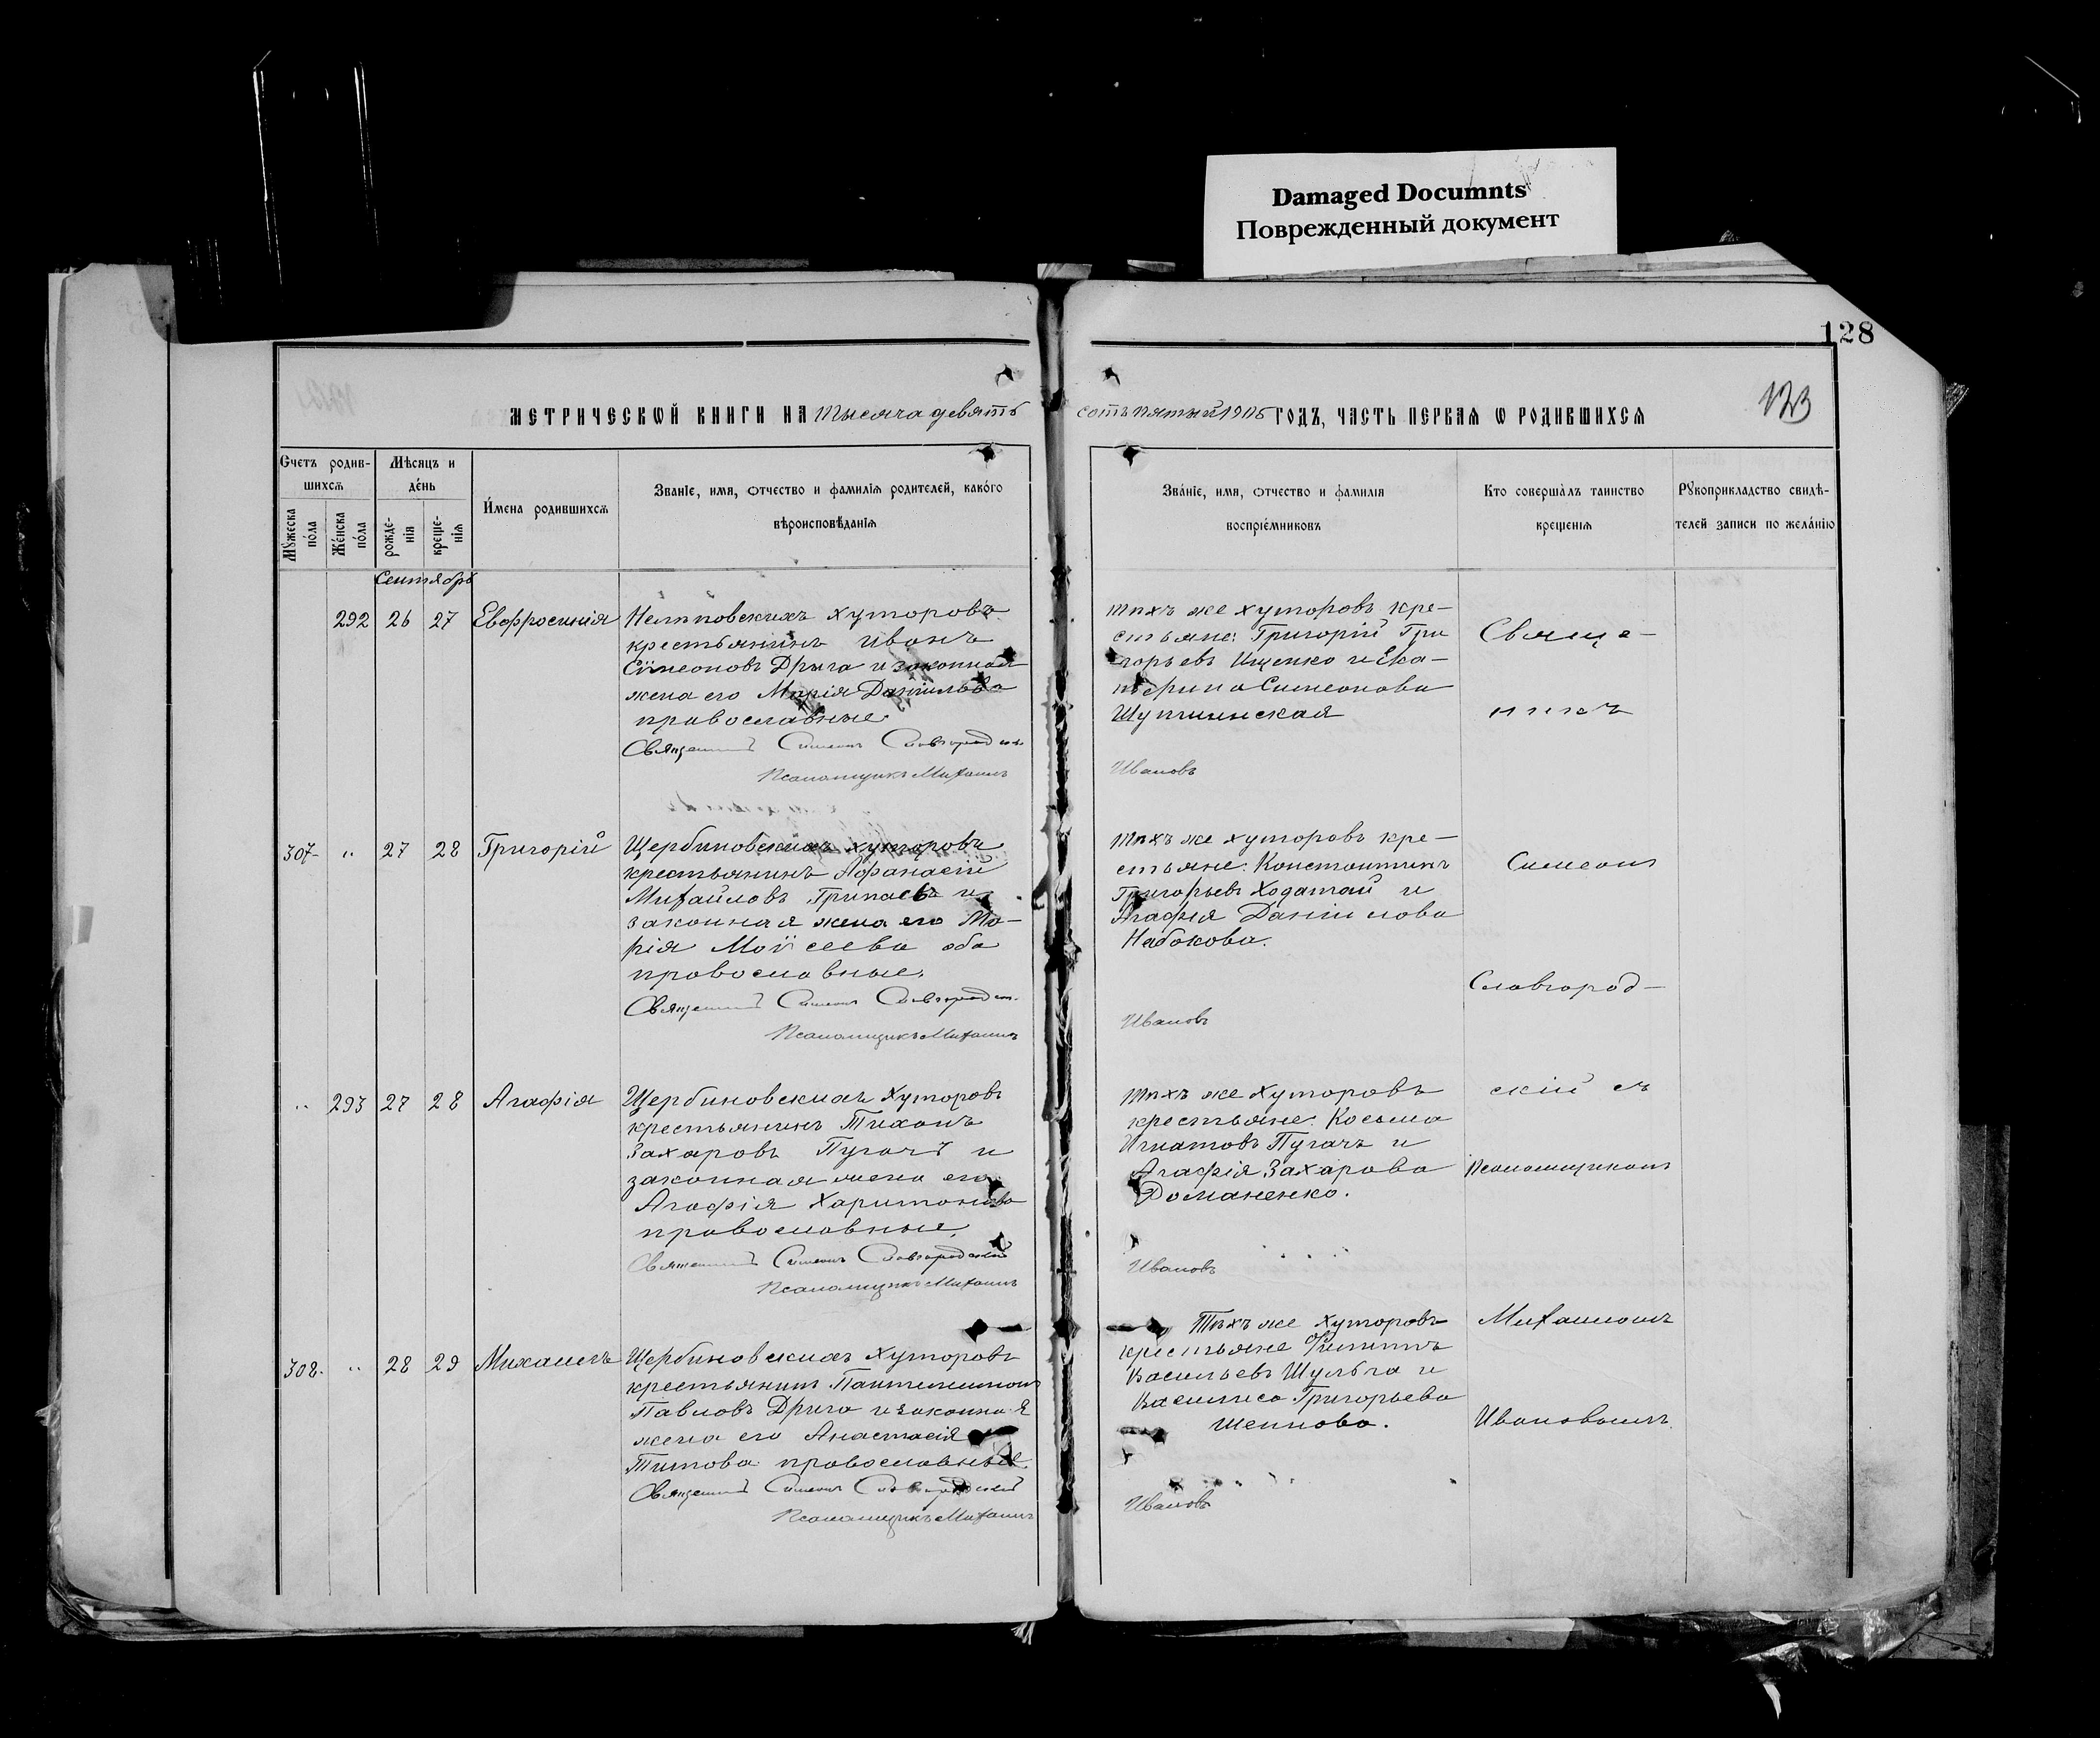 Damaged Documnts
Поврежденный документ
128
123
МЕТРИЧЕСКѠЙ КНИГИ НА тысяча девять
сотъ пятый 1905 ГОДЪ, ЧАСТЬ ПЕРВАЯ Ѡ РОДИВШИХСЯ
Счетъ родив-
шихсѧ
Мꙋжеска пола
Женска пола
Мѣсяцъ и
день
рожде-
нія
креще-
нія
Имена родившихсѧ
Званіе, имя, ѻтчество и фамилія родителей, какого
вѣроисповѣданія
Званіе, имя, ѻтчество и фамилія
воспріемниковъ
Кто совершалъ таинство
крещенія
Рꙋкоприкладство свидѣ-
телей записи по желанію
Сентябрь
292 26 27 Евфросинія
хуторовъ
крестьянинъ Иванъ
Сѵмеоновъ Дрыга и законная
жена его Марія Даніилова
православные
Священникъ Симеонъ Славгородскій
Псаломщикъ Михаилъ
тѣхъ же хуторовъ кре-
стьяне: Григорій Гри
горьевъ Ищенко и Ека-
терина Симеонова
Ивановъ
307- " 27 28 Григорій
Щербиновскихъ хуторовъ
крестьянинъ Аѳанасій
Михайловъ и
законная жена его Ма-
рія Моѵсеева оба
православные.
Священникъ Симеонъ Славгородскій
Псаломщикъ Михаилъ
тѣхъ же хуторовъ кре-
стьяне: Константинъ
Григорьевъ Ходатай и
Агафія Даніилова
Набокова.
Ивановъ
" 293 27 28 Агафія
Щербиновскихъ Хуторовъ
крестьянинъ Тихонъ
Захаровъ Пугачъ и
законная жена его
Агафія Харитонова
православные.
Священникъ Симеонъ Славгородскій
Псаломщикъ Михаилъ
тѣхъ же Хуторовъ
крестьяне: Косьма
Игнатовъ Пугачъ и
Агафія Захарова
Романенко.
Ивановъ
308. " 28 29 Михаилъ
Щербиновскихъ Хуторовъ
крестьянинъ Пантелеимонъ
Павловъ Дрига и законная
жена его Анастасія
Титова православные.
Священникъ Симеонъ Славгородскій
Псаломщикъ Михаилъ
Тѣхъ же хуторовъ
крестьяне
Васильевъ Шульга и
Василиса Григорьева
Ивановъ
Свяще-
нникъ
Симеонъ
Славгород-
скій съ
Псаломщикомъ
Михаиломъ
Ивановымъ